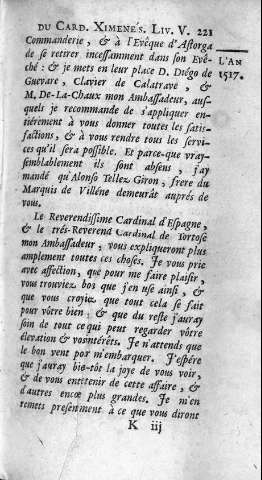 DU CARD. XIMENE'S. LIV. V. 221
Commanderie, & à l'Evêque d'Astorga
de se retirer incessamment dans son Evê-
ché : & je mets en leur place D. Diégo de
Guevare, Clavier de Calatrave, &
M. De-La-Chaux mon Ambassadeur, aus-
quels je recommande de s'appliquer en-
tiérement à vous donner toutes les satis-
factions, & à vous rendre tous les servi-
ces qu'il sera possible. Et parce-que vray-
semblablement ils sont absens, j'ay
mandé qu'Alonso Tellez Giron, frere du
Marquis de Villéne demeurât auprés de
vous.
L'AN
1517.
Le Reverendissime Cardinal d'Espagne,
& le trés-Reverend Cardinal de Tortose
mon Ambassadeur, vous expliqueront plus
amplement toutes ces choses. Je vous prie
avec affection, que pour me faire plaisir,
vous trouviez bos que j'en use ainsi, &
que vous croyiez que tout cela se fait
pour vôtre bien ; & que du reste j'auray
soin de tout ce qui peut regarder vôtre
élevation & vos intérêts. Je n'attends que
le bon vent por m'embarquer. J'espére
que j'auray bien-tôt la joye de vous voir,
& de vous entretenir de cette affaire, &
d'autres encore plus grandes. Je m'en
remets presentment à ce que vous diront
K iij